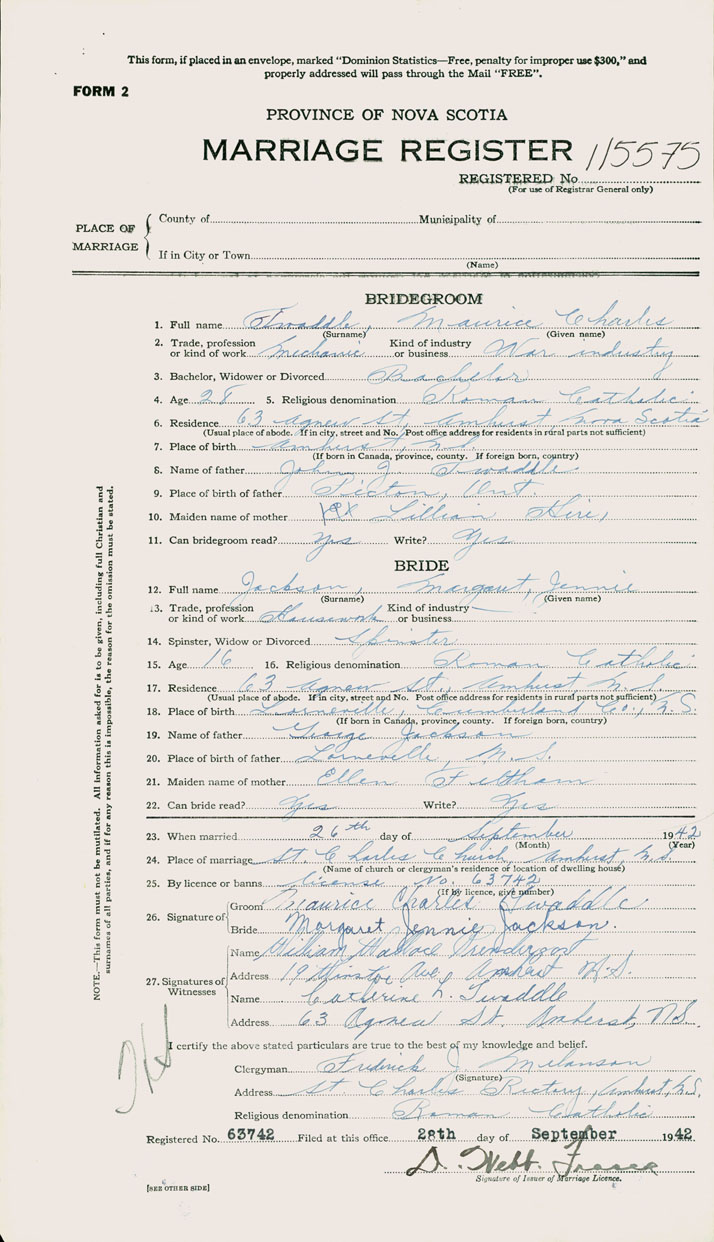 This form, if placed in an envelope, marked "Dominion Statistics—Free, penalty for improper use $300," and
properly addressed will pass through the Mail "FREE".
FORM 2
PROVINCE OF NOVA SCOTIA
MARRIAGE REGISTER 115575
REGISTERED No.
(For use of Registrar General only)
PLACE OF MARRIAGE
County of Municipality of
If in City or Town
(Name)
BRIDEGROOM
1. Full name Twaddle, Maurice Charles
(Surname) (Given name)
2. Trade, profession or kind of work Mechanic Kind of industry or business War industry
3. Bachelor, Widower or Divorced Bachelor
4. Age 28 5. Religious denomination Roman Catholic
6. Residence 63 Agnew St, Amherst Nova Scotia
(Usual place of abode. If in city, street and No. Post office address for residents in rural parts not sufficient)
7. Place of birth Amherst, N.S.
(If born in Canada, province, county. If foreign born, country)
8. Name of father John J. Twaddle
9. Place of birth of father Picton, Ont.
10. Maiden name of mother Lillian
11. Can bridegroom read? Yes Write? Yes
BRIDE
12. Full name Jackson, Margaret, Jennie
(Surname) (Given name)
13. Trade, profession or kind of work Housework Kind of industry or business —
14. Spinster, Widow or Divorced Spinster
15. Age 16 16. Religious denomination Roman Catholic
17. Residence 63 Agnew St, Amherst N.S.
(Usual place of abode. If in city, street and No. Post office address for residents in rural parts not sufficient)
18. Place of birth Lorneville, Cumberland Co., N.S.
(If born in Canada, province, county. If foreign born, country)
19. Name of father George Jackson
20. Place of birth of father Lorneville, N.S.
21. Maiden name of mother Ellen Feltham
22. Can bride read? Yes Write? Yes
23. When married 26th day of September 1942
(Month) (Year)
24. Place of marriage St. Charles Church, Amherst, N.S.
(Name of church or clergyman's residence or location of dwelling house)
25. By licence or banns License No. 63742
(If by licence, give number)
26. Signature of
Groom Maurice Charles Twaddle
Bride Margaret Jennie Jackson.
27. Signatures of Witnesses
Name William Wallace
Address 19 Ave, Amherst N.S.
Name Catherine L. Twaddle
Address 63 Agnew St. Amherst, N.S.
I certify the above stated particulars are true to the best of my knowledge and belief.
Clergyman Fredrick J. Melanson
(Signature)
Address St Charles Rectory, Amherst, N.S.
Religious denomination Roman Catholic
Registered No. 63742 Filed at this office 28th day of September 1942
D. Webb. Fraser
Signature of Issuer of Marriage Licence.
[SEE OTHER SIDE]
NOTE.—This form must not be mutilated. All information asked for is to be given, including full Christian and
surnames of all parties, and if for any reason this is impossible, the reason for the omission must be stated.